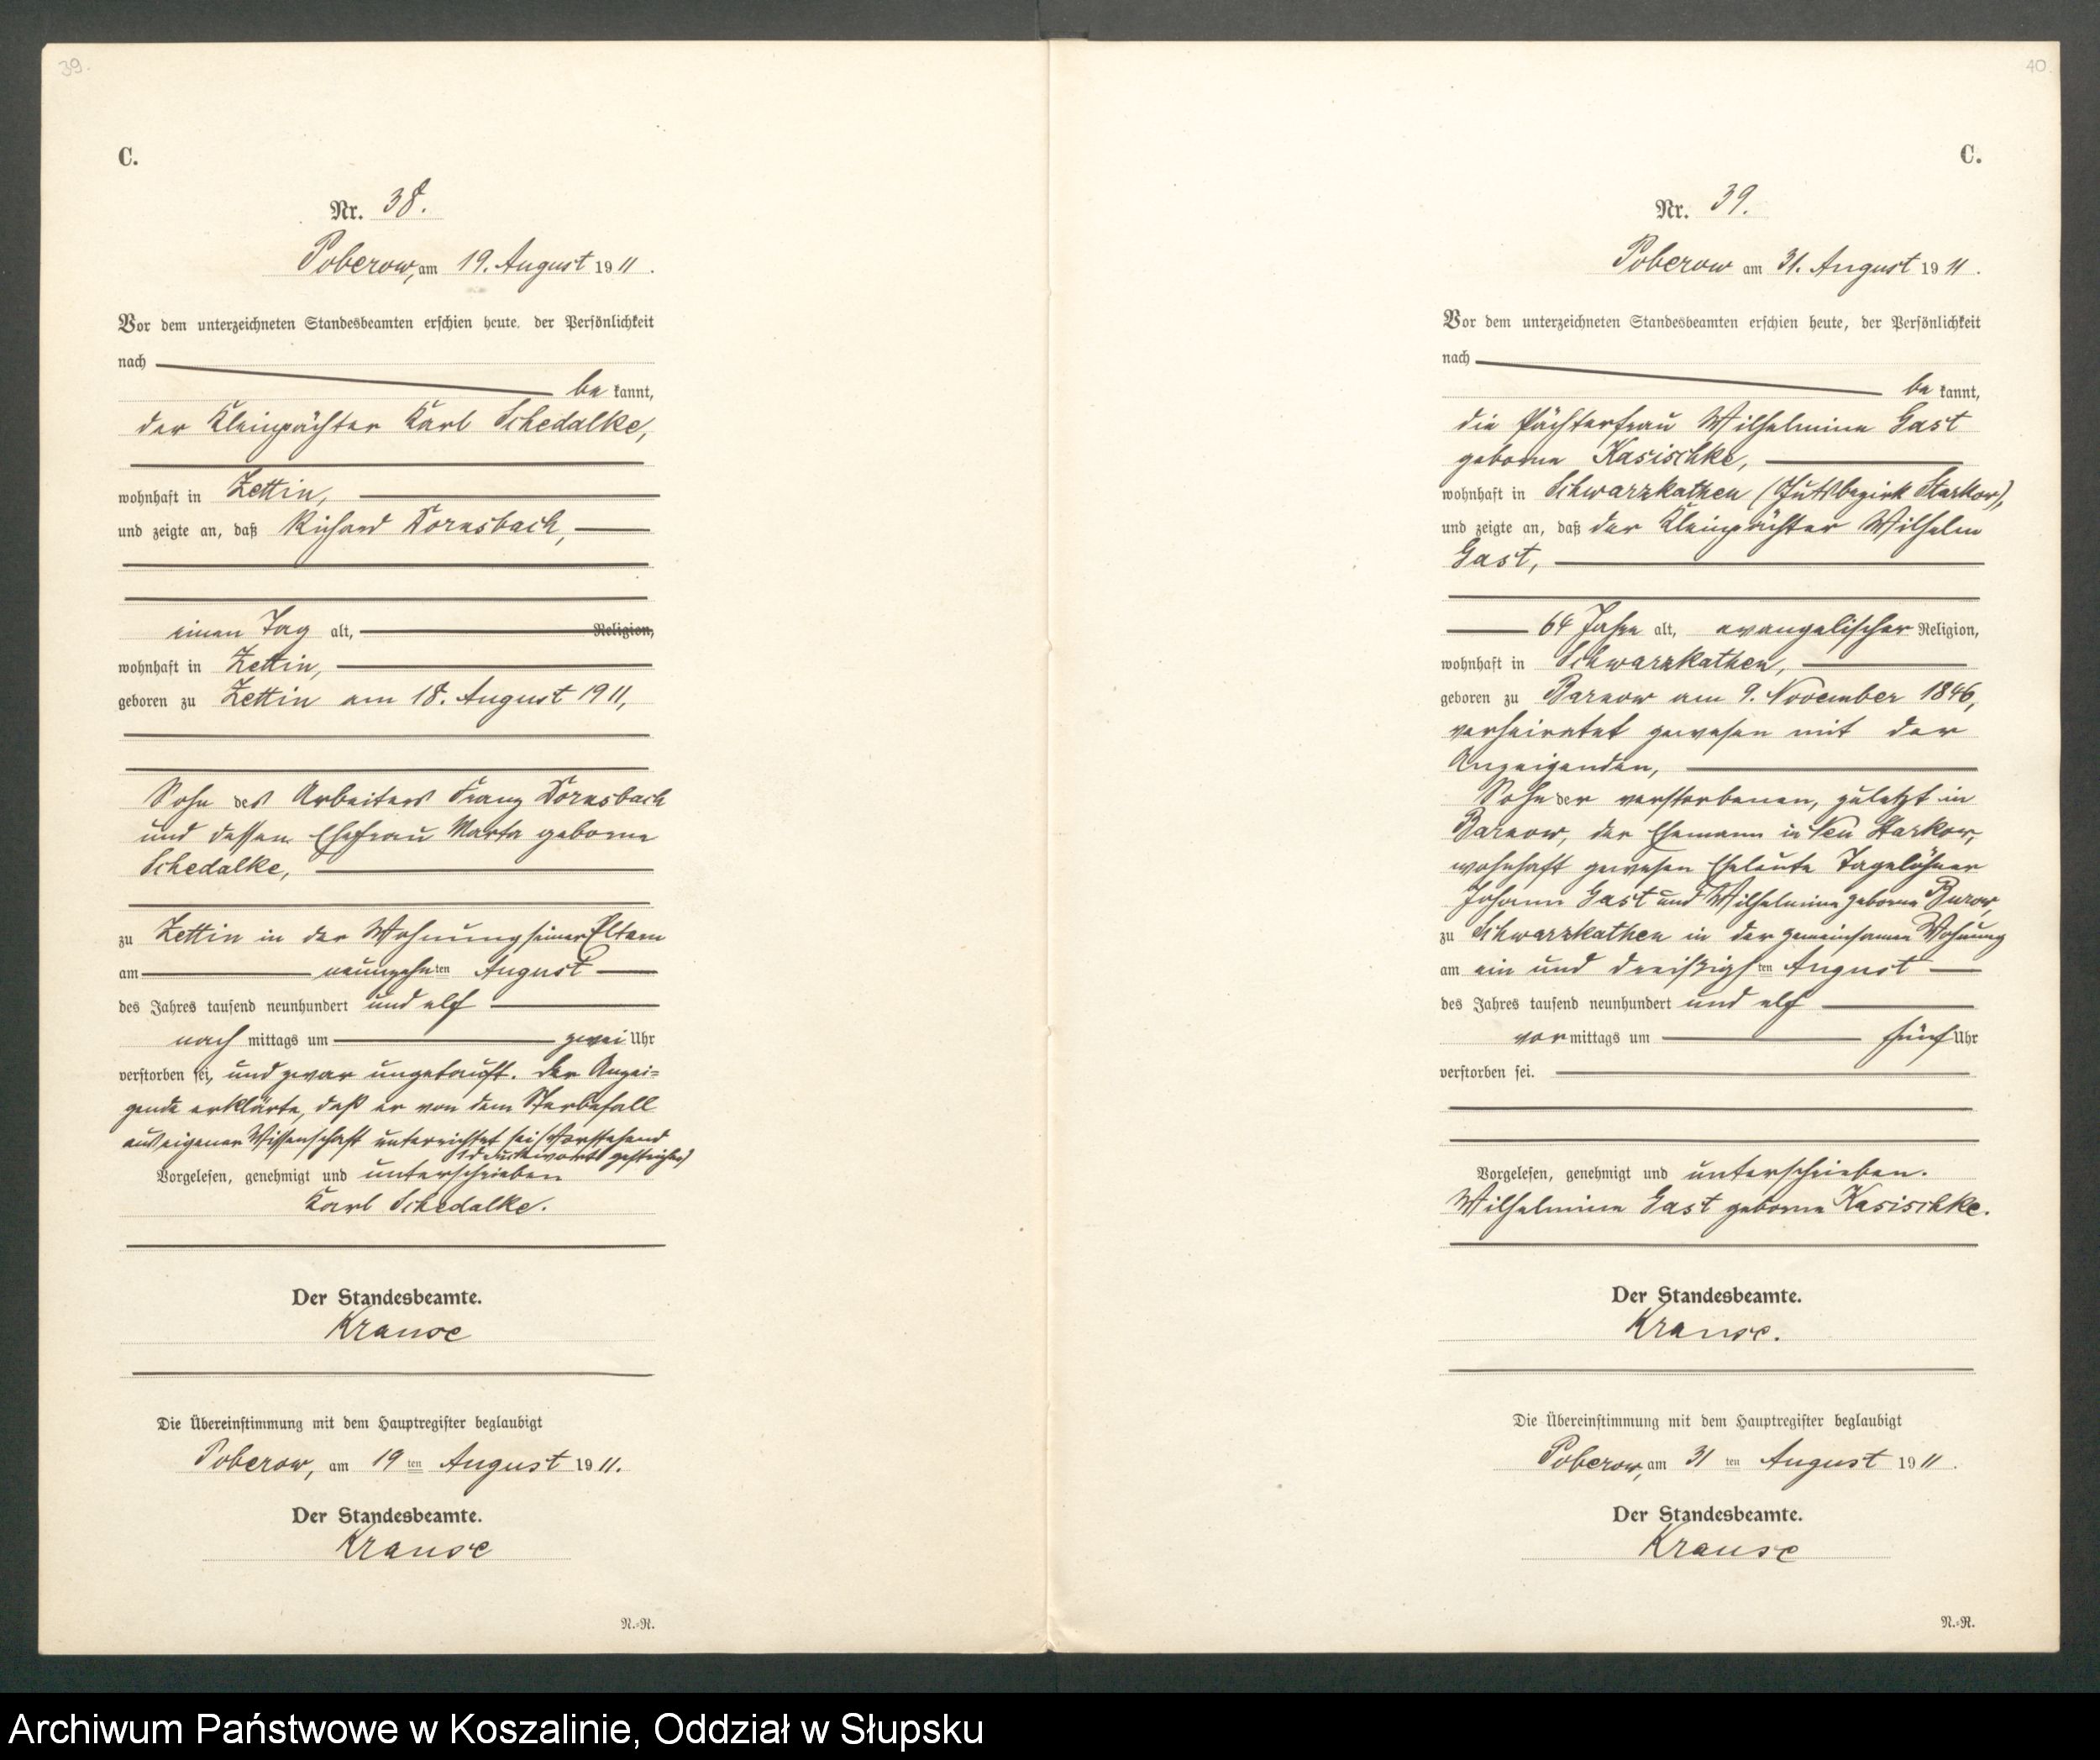 39.
C.
Nr. 38.
Poberow, am 19. August 1911.
Vor dem unterzeichneten Standesbeamten erschien heute, der Persönlichkeit
nach
be kannt,
der Kleinpächter Karl Schedalke,
wohnhaft in Zettin,
und zeigte an, daß Richard Dornsbach,
einen Tag alt, Religion,
wohnhaft in Zettin,
geboren zu Zettin am 18. August 1911,
Sohn des Arbeiters Franz Dornsbach
und dessen Ehefrau Marta geborne
Schedalke,
zu Zettin in der Wohnung seiner Eltern
am neunzehnten August
des Jahres tausend neunhundert und elf
nach mittags um zwei Uhr
verstorben sei, und zwar ungetauft. Der Anzei=
gende erklärte, daß er von dem Sterbefall
aus eigener Wissenschaft unterrichtet sei (Vorstehend
1 Druckwort gestrichen)
Vorgelesen, genehmigt und unterschrieben
Karl Schedalke.
Der Standesbeamte.
Krause
Die Übereinstimmung mit dem Hauptregister beglaubigt
Poberow, am 19 ten August 1911.
Der Standesbeamte.
Krause
N.=R.
40.
C.
Nr. 39.
Poberow am 31. August 1911.
Vor dem unterzeichneten Standesbeamten erschien heute, der Persönlichkeit
nach
be kannt,
die Pächterfrau Wilhelmine Gast
geborne Kasischke,
wohnhaft in Schwarzkathen (Gutsbezirk Starkow),
und zeigte an, daß der Kleinpächter Wilhelm
Gast,
64 Jahre alt, evangelischer Religion,
wohnhaft in Schwarzkathen,
geboren zu Barnow am 9. November 1846,
verheiratet gewesen mit der
Anzeigenden,
Sohn der verstorbenen, zuletzt in
Barnow, der Ehemann in Neu Starkow,
wohnhaft gewesen Eheleute Tagelöhner
Johann Gast und Wilhelmine geborne Burow
zu Schwarzkathen in der gemeinsamen Wohnung
am ein und dreißigsten August
des Jahres tausend neunhundert und elf
vor mittags um fünf Uhr
verstorben sei.
Vorgelesen, genehmigt und unterschrieben.
Wilhelmine Gast geborne Kasischke.
Der Standesbeamte.
Krause.
Die Übereinstimmung mit dem Hauptregister beglaubigt
Poberow, am 31 ten August 1911.
Der Standesbeamte.
Krause
N.=R.
Archiwum Państwowe w Koszalinie, Oddział w Słupsku